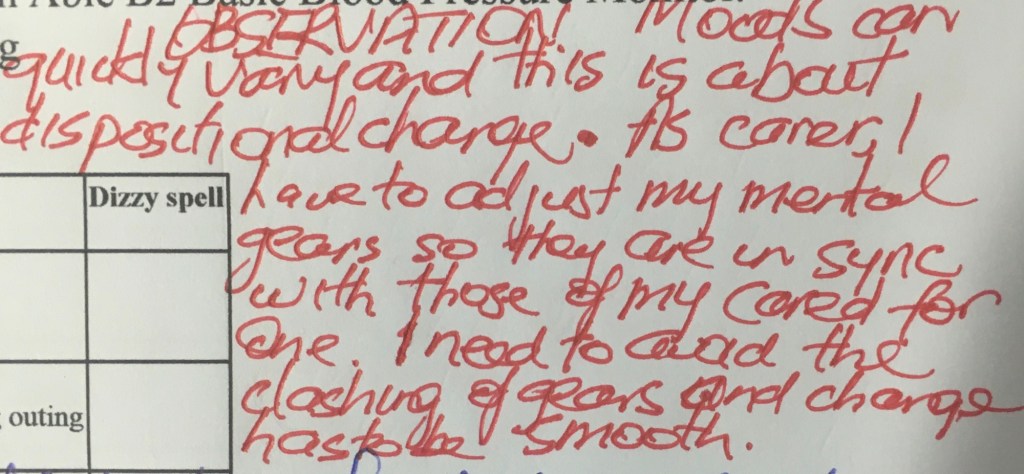 n Able B2 Basic Blood Pressure Monitor.
g
OBSERVATION! Moods can
quickly vary and this is about
dispositional change. As carer, I
Dizzy spell
have to adjust my mental
gears so they are in sync
with those of my cared for
one. I need to avoid the
clashing of gears and change
outing
has to be smooth.